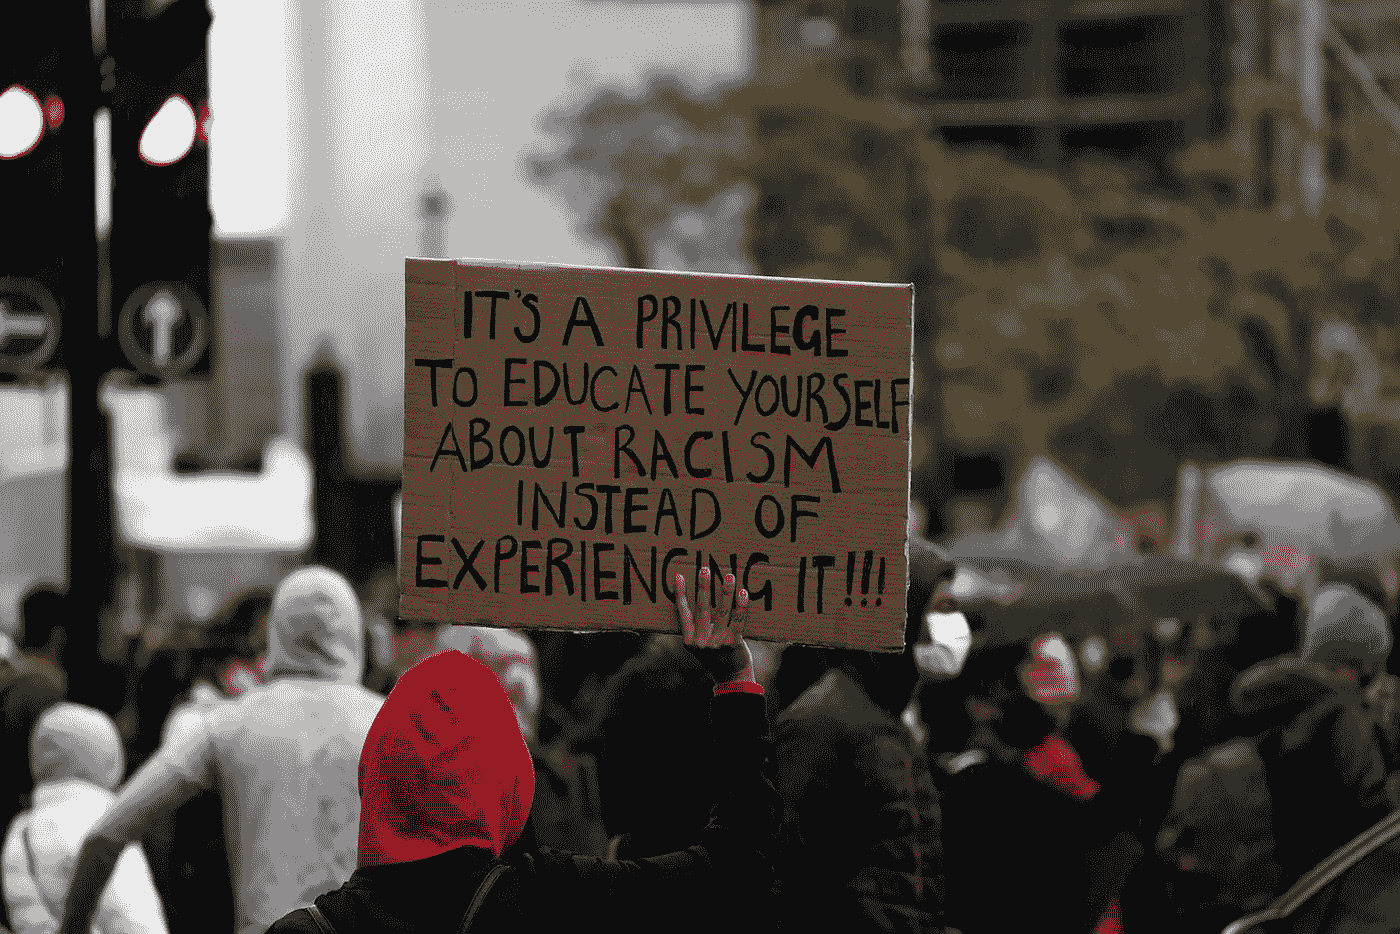 IT'S A PRIVILEGE
TO EDUCATE YOURSELF
ABOUT RACISM
INSTEAD OF
EXPERIENCING IT!!!